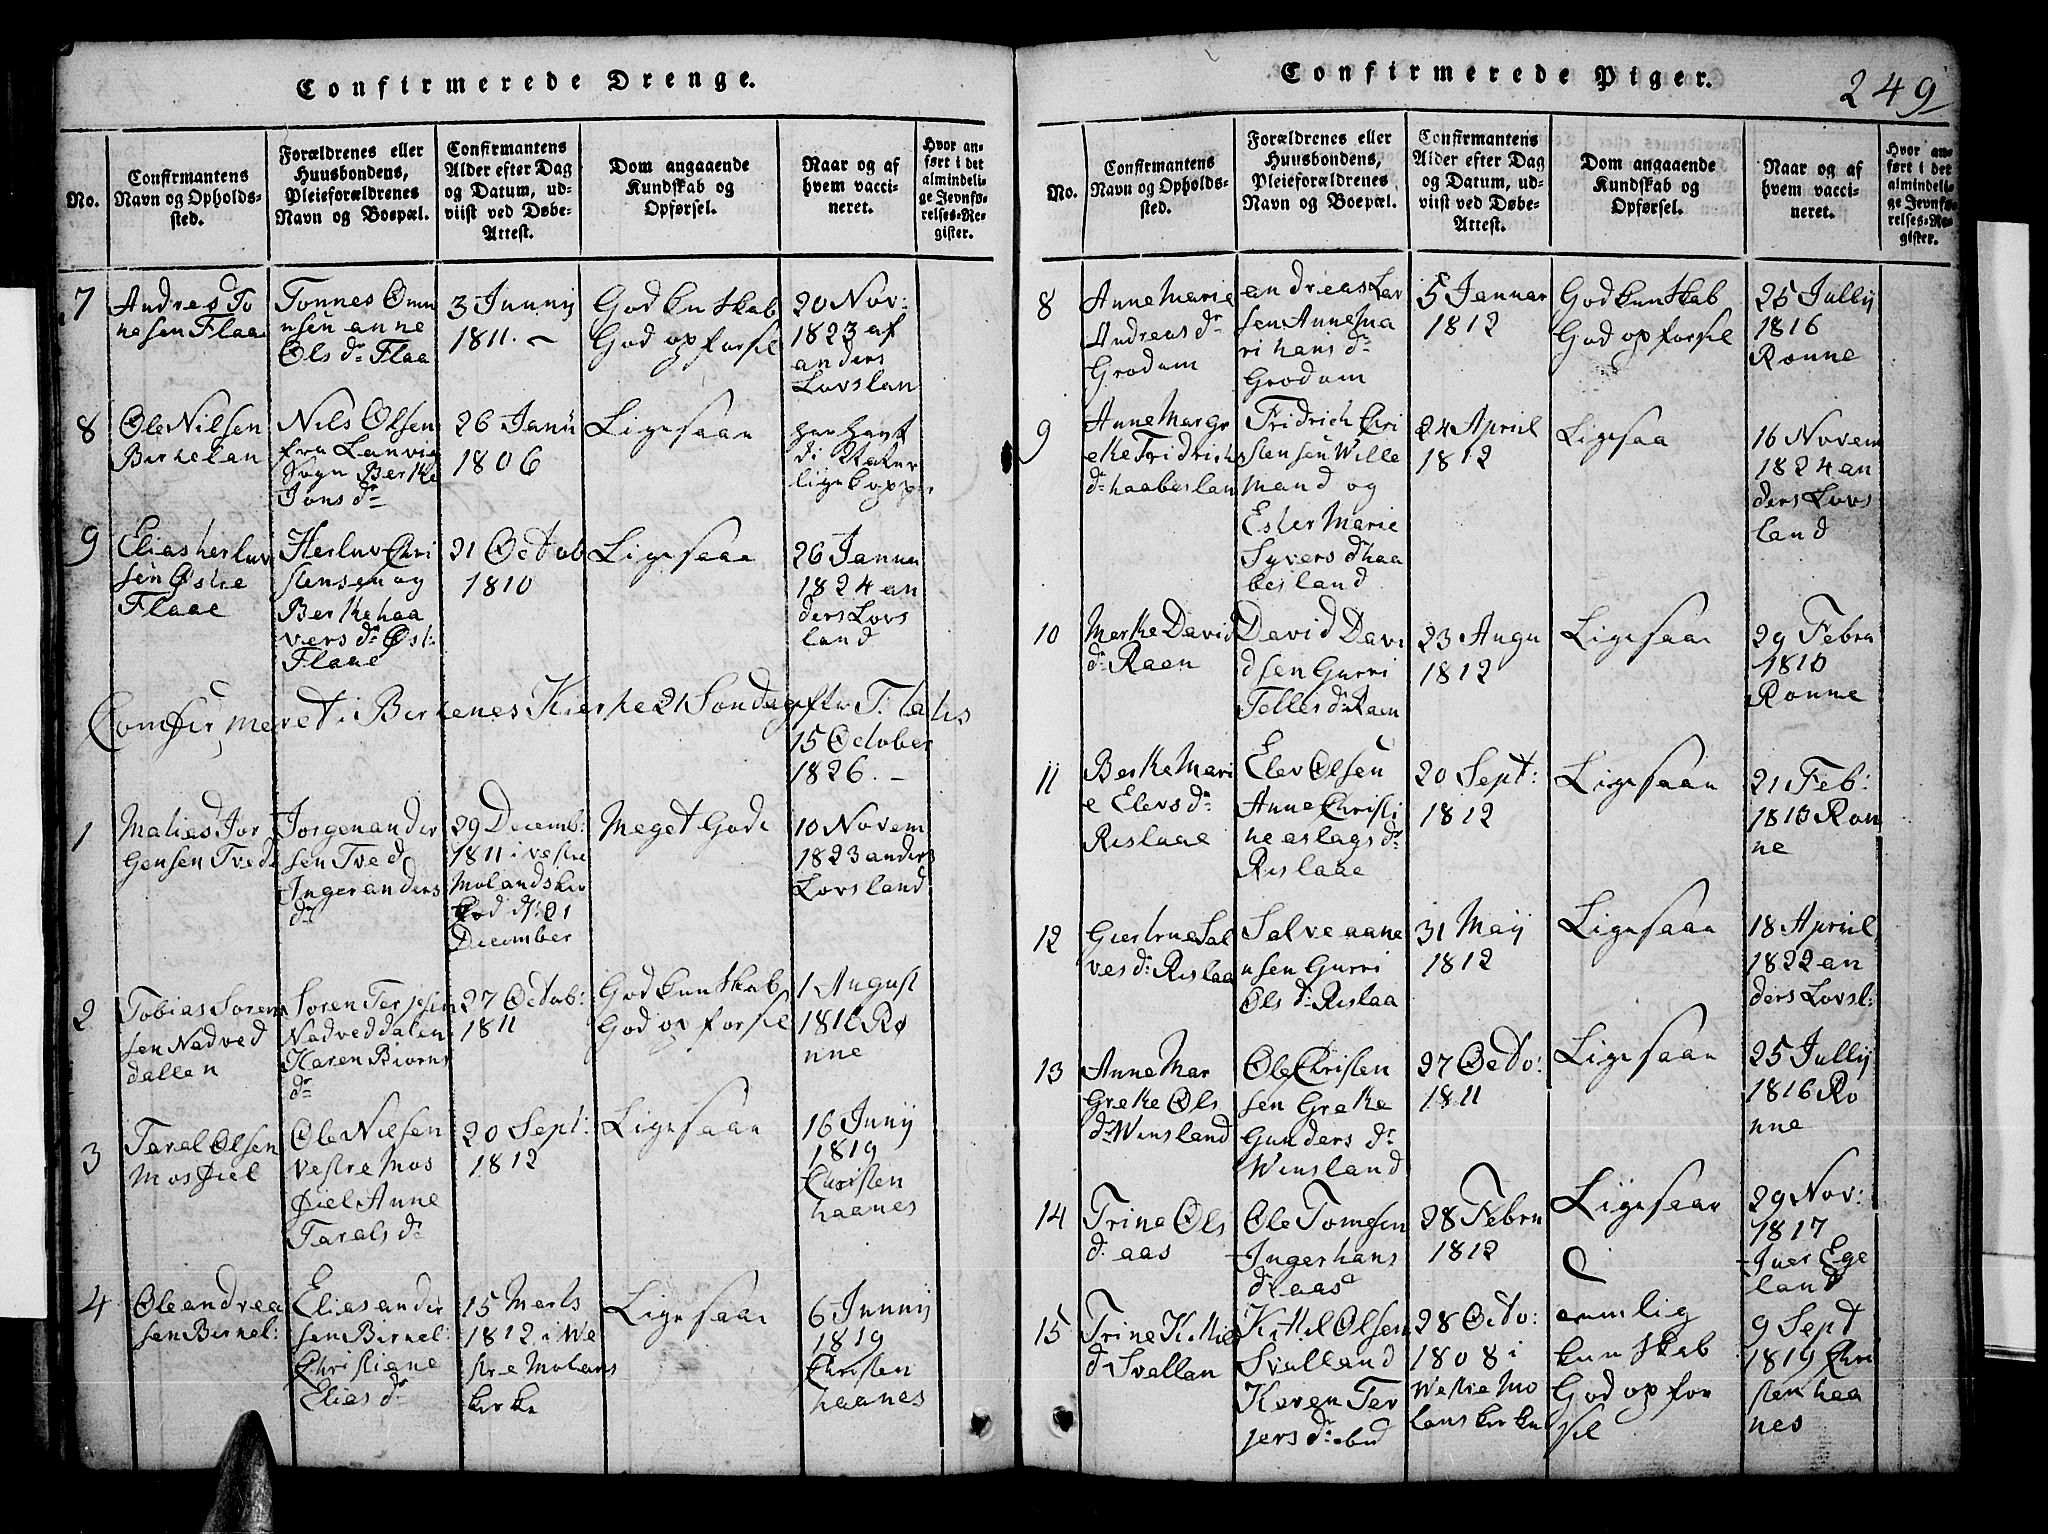 Confirmerede Drenge.
No.
Confirmantens
Navn og Opholds-
sted.
Forældrenes eller
Huusbondens,
Pleieforældrenes
Navn og Boepæl.
Confirmantens
Alder efter Dag
og Datum, ud-
viist ved Døbe-
Attest.
Dom angaaende
Kundskab og
Opførsel.
Naar og af
hvem vacci-
neret.
Hvor an-
ført i det
almindeli-
ge Jevnfø-
relses-Re-
gister.
7
Andres To
nesen Flaae
Tonnes Omu
nsen anne
Ols dr Flaa
3 Junnij
1811. -
God kunskab
God opforsel
20 Nov:
1823 af
anders
Lovslan
8
Ole Nilsen
Berkelan
Nils Olsen
fra Lanvig
Sogn Berthe
Jons dr
26 Janu
1806
Ligesaa
har havt
di
lige kopper
9
Elias herluv
sen Østre
Flaae
Herluv Chri
stensen og
Berthe haa
vers dr Øst:
Flaae
21 Octob
1810
Ligesaa
26 Janu
1824 an
ders Lovs
land
Comfirmeret i Berkenes Kierke 21 Søndag efter T:
15 October
1826. -
1
Matias Jor
gensen Tvede
Jorgen ander
sen Tved
Inger anders
dr
29 Decemb:
1811 i vestre
Molands kir
d: 21
December
Meget Gode
10 Novem
1823 anders
Lovsland
2
Tobias Soren
sen Nadved
dallen
Soren Terjesen
Nadveddalen
Karen Biorns
dr
27 Octob:
1811
God kunskab
God opforsel
1 August
1816 Rø
nne
3
Taral Olsen
Mosfiel
Ole Nilsen
vestre Mos
fiel Anne
Tarals dr
20 Sept:
1812
Ligesaa
16 Junij
1819
Christen
haanes
4
Ole andrea
sen Birkel:
Elias ander
sen Birkel:
Christiane
Elias dr
15 Marts
1812 i We
stre Molans
kirke
Ligesaa
6 Junnij
1819
Christen
haanes
Confirmerede Piger.
249
No.
Confirmantens
Navn og Opholds-
sted.
Forældrenes eller
Huusbondens,
Pleieforældrenes
Navn og Boepæl.
Confirmantens
Alder efter Dag
og Datum, ud-
viist ved Døbe-
Attest.
Dom angaaende
Kundskab og
Opførsel.
Naar og af
hvem vacci-
neret.
Hvor an-
ført i det
almindeli-
ge Jevnfø-
relses-Re-
gister.
8
Anne Marie
Andreas dr
Grodum
andreas Lar
sen Anne ma
ri hans dr
Grodum
5 Januar
1812
God kunskab
God opforsel
25 Jullij
1816
Ronne
9
Anne Margr
ethe Fridrich
dr haabeslan
Fridrich Chri
stensen Wille
mand og
Ester Marie
Syvers dr haa
besland
24 April
1812
Ligesaa
16 Novem
1824 an
ders Lovs
land
10
Merthe David
dr Raen
David Davi
dsen Gurri
Tellefs dr Raen
23 Augu
1812
Ligesaa
29 Febru
1816
Ronne
11
Berthe Mari
e Elevs dr
Rislaae
Elev Olsen
Anne Christi
ne aslags dr
Rislaae
20 Sept:
1812
Ligesaa
21 Feb:
1813 Ron
ne
12
Giertrue Sal
ves dr Rislaa
Salve aane
nsen Gurri
Ols dr Rislaa
31 Maij
1812
Ligesaa
18 April
1822 an
ders Lovsl:
13
Anne Mar
Grethe Ols
dr Winsland
Ole Christen
sen Grethe
Gunders dr
Winsland
27 Octo:
1811
Ligesaa
25 Jullij
1816 Ro
nne
14
Trine Ols
d: aas
Ole Tomesen
Inger hans
dr aas
28 Febru
1812
Ligesaa
29 Nov:
1817
Iver Ege
land
15
Trine Kittils
dr Svallan
Kittel Olsen
Svalland
Karen Ter
jers dr ibid
28 Octo:
1808 i
Westre Mo
lans kirke
temlig
kunskab
God opfor
sel
9 Sept
1819 Chri
sten haa
nes